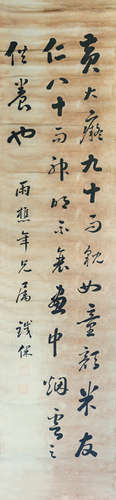 黄大癡九十而貌如童顔米友
仁八十而神明不衰画中烟雲之
供養也
雨樵年兄属 鐵保